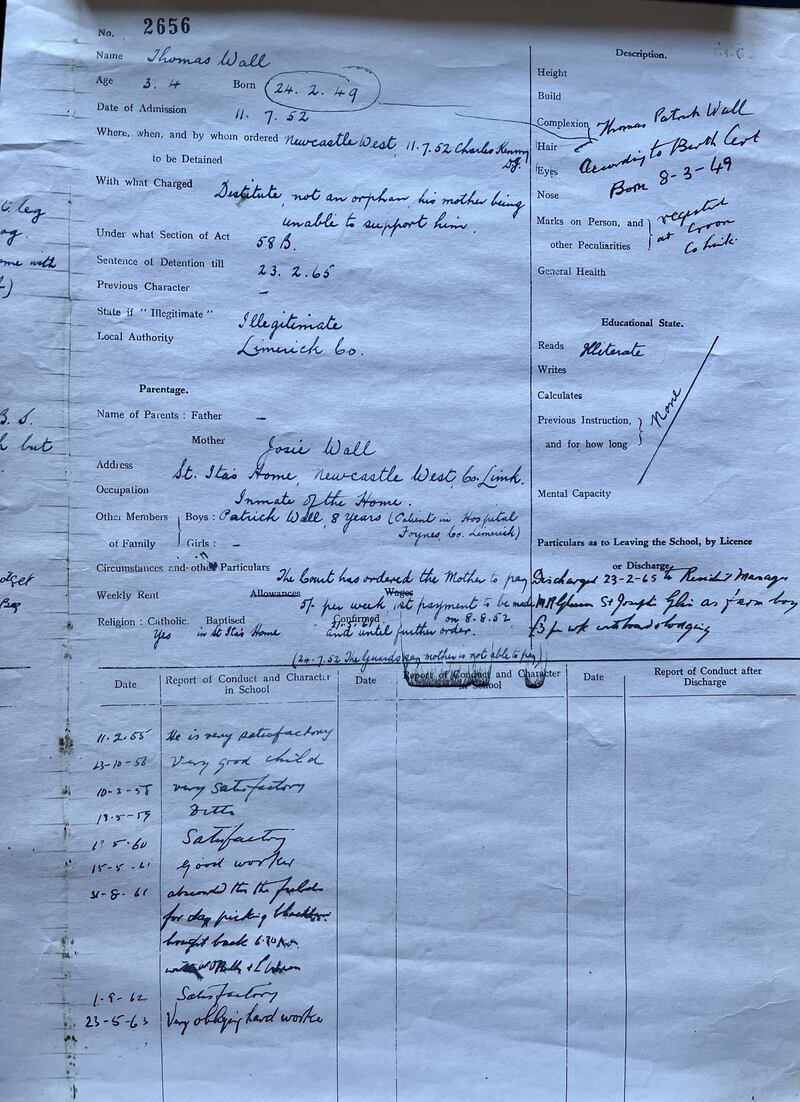 No. 2656
Name Thomas Wall
Age 3. 4 Born 24. 2. 49
Date of Admission 11. 7. 52
Where, when, and by whom ordered Newcastle West, 11.7.52 Charles Kenny
to be Detained D.J.
With what Charged Destitute, not an orphan, his mother being
unable to support him.
Under what Section of Act 58 B.
Sentence of Detention till 23. 2. 65
Previous Character –
State if "Illegitimate" Illegitimate
Local Authority Limerick Co.
Parentage.
Name of Parents : Father –
Mother Josie Wall
Address St. Ita's Home, Newcastle West, Co. Limk.
Occupation Inmate of the Home.
Other Members Boys : Patrick Wall, 8 years (Patient in Hospital
Foynes, Co. Limerick)
of Family Girls : –
Circumstances and other Particulars The Court has ordered the Mother to pay
Weekly Rent Allowances Wages 5/- per week, 1st payment to be made
on 8.8.52
Religion : Catholic. Baptised Confirmed and until further order.
Yes in St Ita's Home
(24.7.52 The Guards say mother is not able to pay)
Description.
Height
Build
Complexion Thomas Patrick Wall
Hair
According to Birth Cert
Eyes
Born 8-3-49
Nose
Marks on Person, and registered
at Croom
other Peculiarities Co Limk.
General Health
Educational State.
Reads Illiterate
Writes
Calculates
Previous Instruction, None
and for how long
Mental Capacity
Particulars as to Leaving the School, by Licence
or Discharge
Discharged 23-2-65 to Resident Manager
St Joseph Glin as farm boy
£3 per wk with board & lodging
Date Report of Conduct and Character in School Date Report of Conduct and Character in School Date Report of Conduct after Discharge
11.2.55 He is very satisfactory
23-10-56 Very good child
10-3-58 very satisfactory
19.5-59 Ditto
5-60 Satisfactory
15-5-61 Good worker
31-8-61 absconded the fields
for day picking
brought back 6.30
1-9-62 Satisfactory
23-5-63 Very obliging hard worker